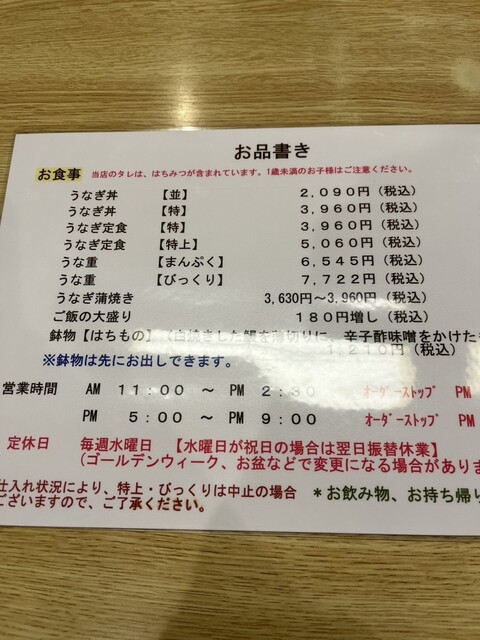 お品書き
お食事 当店のタレは、はちみつが含まれています。1歳未満のお子様はご注意ください。
うなぎ丼 【並】 2,090円(税込)
うなぎ丼 【特】 3,960円(税込)
うなぎ定食 【特】 3,960円(税込)
うなぎ定食 【特上】 5,060円(税込)
うな重 【まんぷく】 6,545円(税込)
うな重 【びっくり】 7,722円(税込)
うなぎ蒲焼き 3,630円~3,960円(税込)
ご飯の大盛り 180円増し(税込)
鉢物【はちもの】(白焼きした鰻を薄切りに、辛子酢味噌をかけた
1,210円(税込)
※鉢物は先にお出しできます。
営業時間 AM 11:00 ~ PM 2:30 オーダーストップ PM
PM 5:00 ~ PM 9:00 オーダーストップ PM
定休日 毎週水曜日 【水曜日が祝日の場合は翌日振替休業】
(ゴールデンウィーク、お盆などで変更になる場合があります
仕入れ状況により、特上・びっくりは中止の場合 *お飲み物、お持ち帰り
ございますので、ご了承ください。